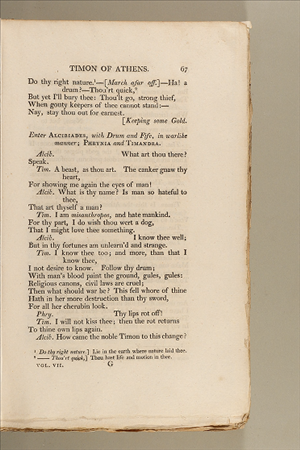 TIMON OF ATHENS. 67
Do thy right nature.¹—[March afar off.]—Ha! a
drum?—Thou'rt quick,²
But yet I'll bury thee: Thou'lt go, strong thief,
When gouty keepers of thee cannot stand:—
Nay, stay thou out for earnest.
[Keeping some Gold.
Enter ALCIBIADES, with Drum and Fife, in warlike
manner; PHRYNIA and TIMANDRA.
Alcib. What art thou there?
Speak.
Tim. A beast, as thou art. The canker gnaw thy
heart,
For showing me again the eyes of man!
Alcib. What is thy name? Is man so hateful to
thee,
That art thyself a man?
Tim. I am misanthropos, and hate mankind.
For thy part, I do wish thou wert a dog,
That I might love thee something.
Alcib. I know thee well;
But in thy fortunes am unlearn'd and strange.
Tim. I know thee too; and more, than that I
know thee,
I not desire to know. Follow thy drum;
With man's blood paint the ground, gules, gules:
Religious canons, civil laws are cruel;
Then what should war be? This fell whore of thine
Hath in her more destruction than thy sword,
For all her cherubin look.
Phry. Thy lips rot off!
Tim. I will not kiss thee; then the rot returns
To thine own lips again.
Alcib. How came the noble Timon to this change?
¹ Do thy right nature.] Lie in the earth where nature laid thee.
² —— Thou'rt quick,] Thou hast life and motion in thee.
VOL. VII. G